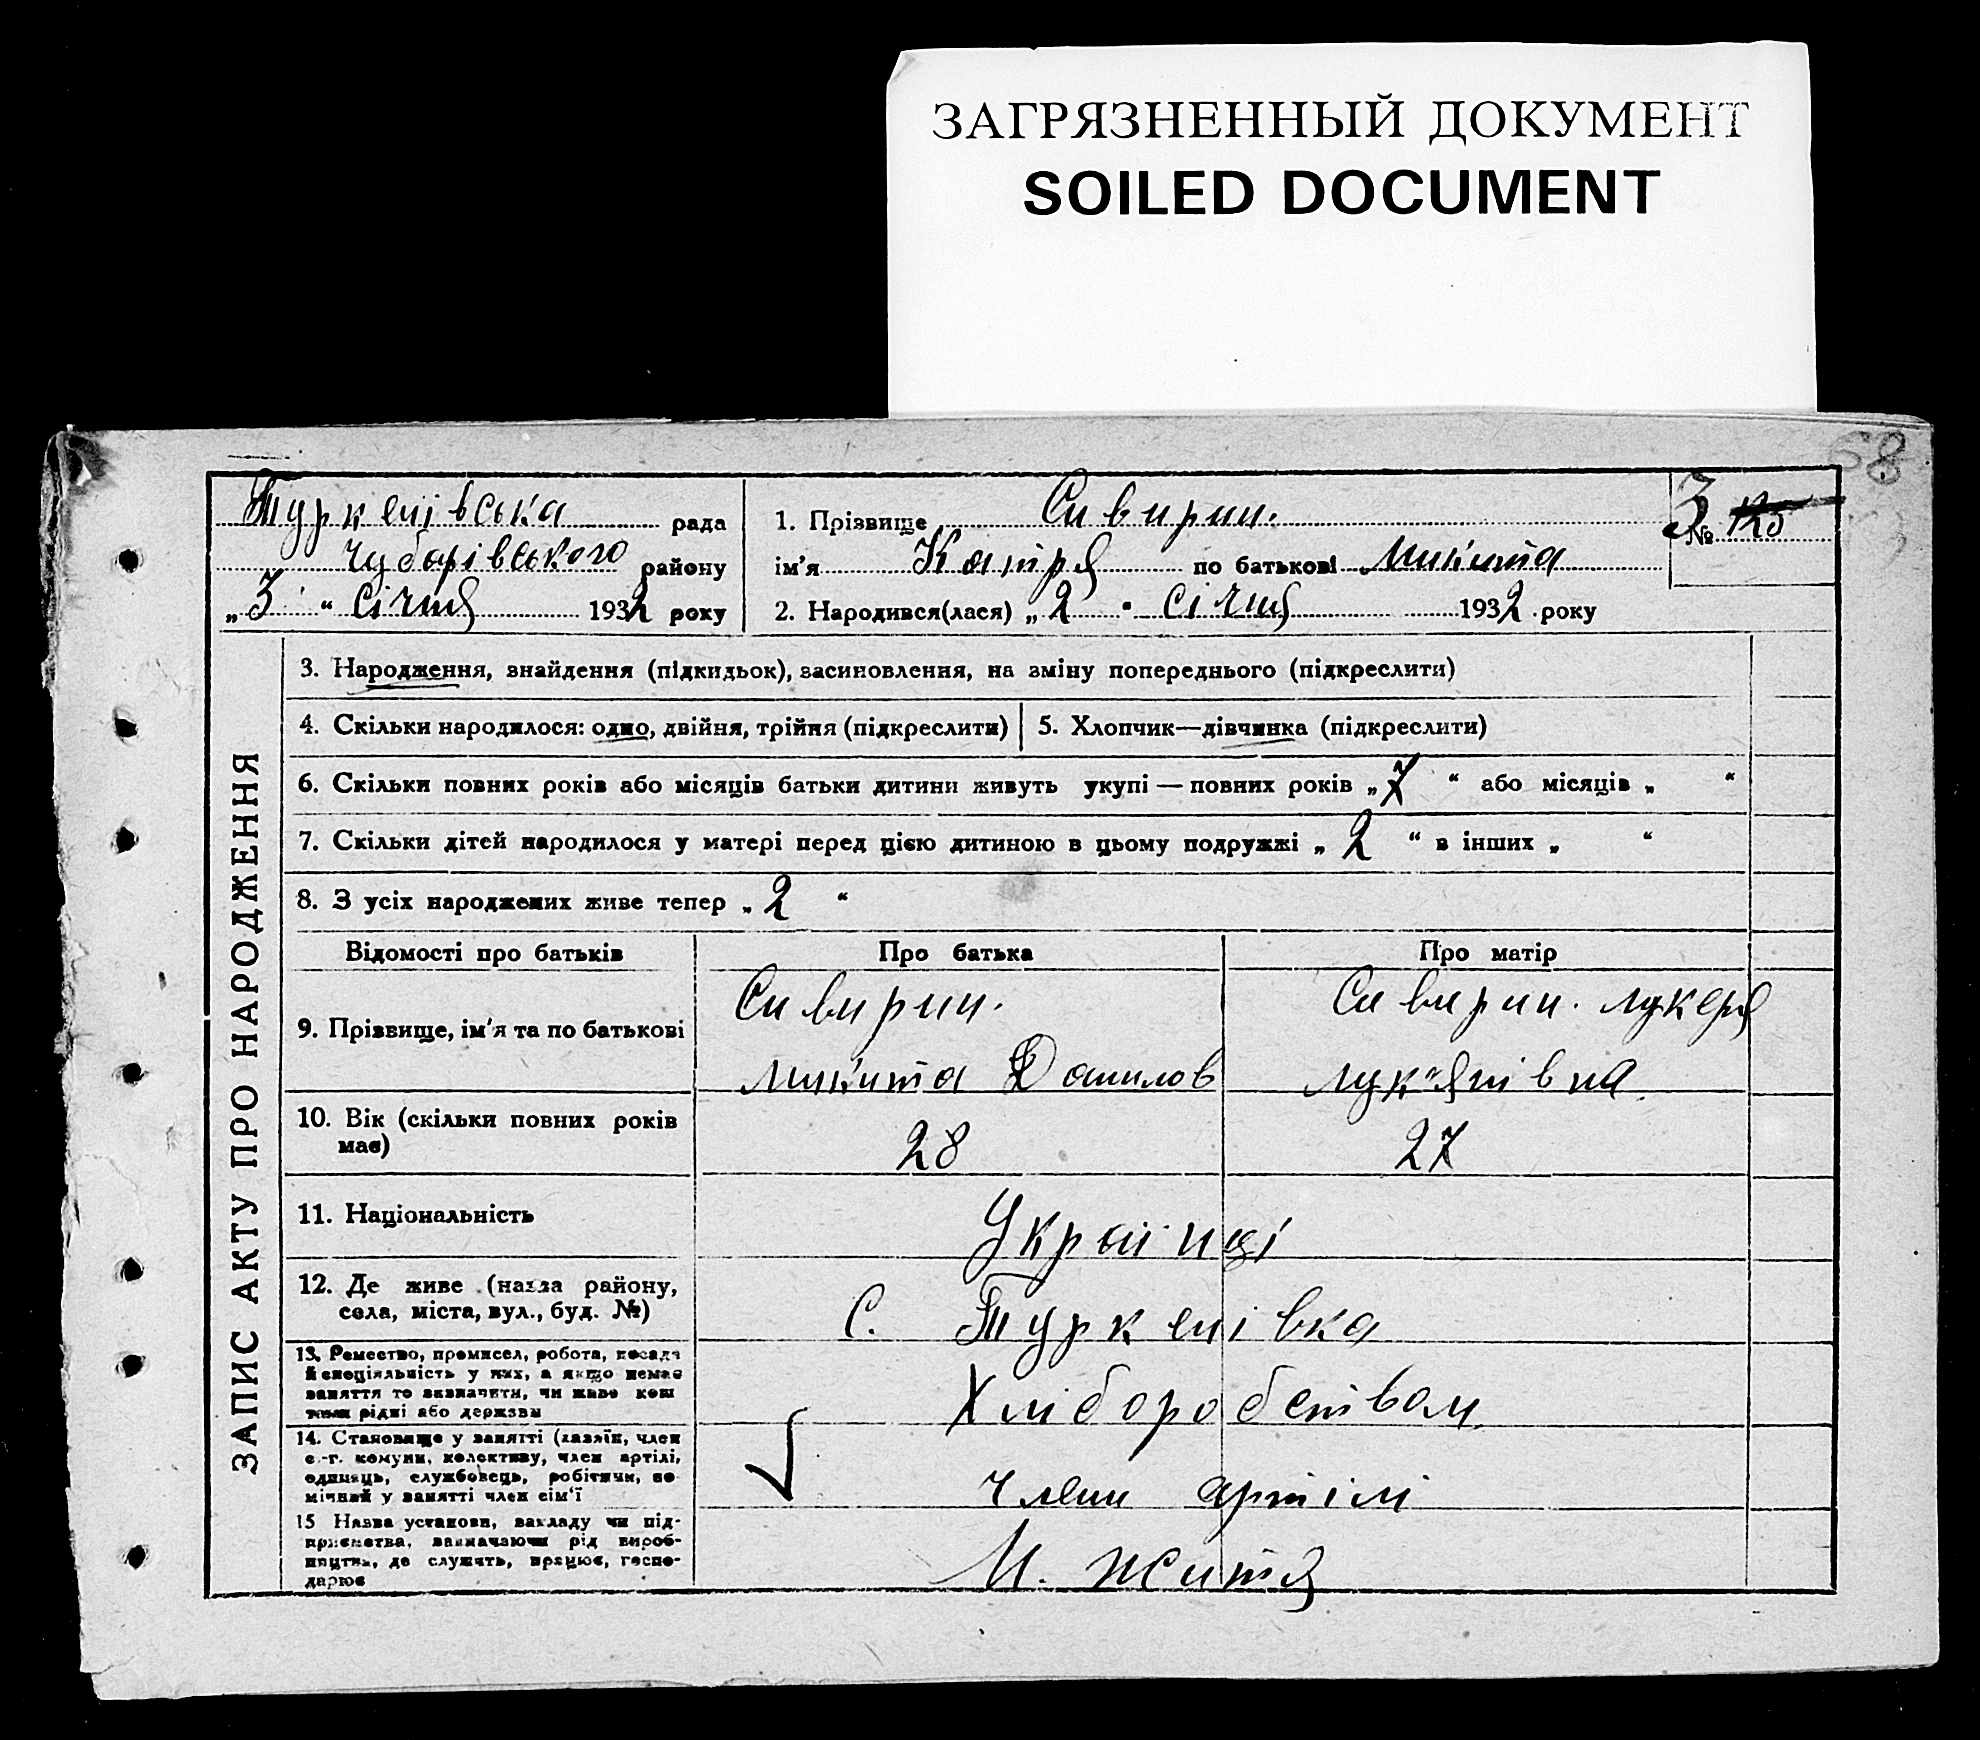 ЗАГРЯЗНЕННЫЙ ДОКУМЕНТ
SOILED DOCUMENT
68
Туркенівська рада
Чубарівського району
„3“ Січня 1932 року
1. Прізвище Сивирин.
ім'я Катря по батькові Микита
2. Народився(лася) „2" Січня 1932 року
3 № 125
ЗАПИС АКТУ ПРО НАРОДЖЕННЯ
3. Народження, знайдення (підкидьок), засиновлення, на зміну попереднього (підкреслити)
4. Скільки народилося: одно, двійня, трійня (підкреслити)
5. Хлопчик—дівчинка (підкреслити)
6. Скільки повних років або місяців батьки дитини живуть укупі — повних років „7“ або місяців „ “
7. Скільки дітей народилося у матері перед цією дитиною в цьому подружжі „2“ в інших „ “
8. З усіх народжених живе тепер „2“
Відомості про батьків Про батька Про матір
9. Прізвище, ім'я та по батькові
Сивирин.
Микита Данилов
Сивирин. Лукеря
Лук'янівна
10. Вік (скільки повних років
має)
28 27
11. Національність Українці
12. Де живе (назва району,
села, міста, вул., буд. №)
С. Туркенівка
13. Ремество, промисел, робота, посада
й спеціяльність у них, а якщо немає
заняття то зазначити, чи живе кош
тами рідні або держави
Хліборобством
14. Становище у занятті (хазяїн, член
с.-г. комуни, колективу, член артілі,
одинець, службовець, робітник, по-
мічний у занятті член сім'ї
Члени артілі
15 Назва установи, закладу чи під-
приємства, зазначаючи рід вироб-
ництва, де служать, працює, госпо-
дарює
Н. Життя